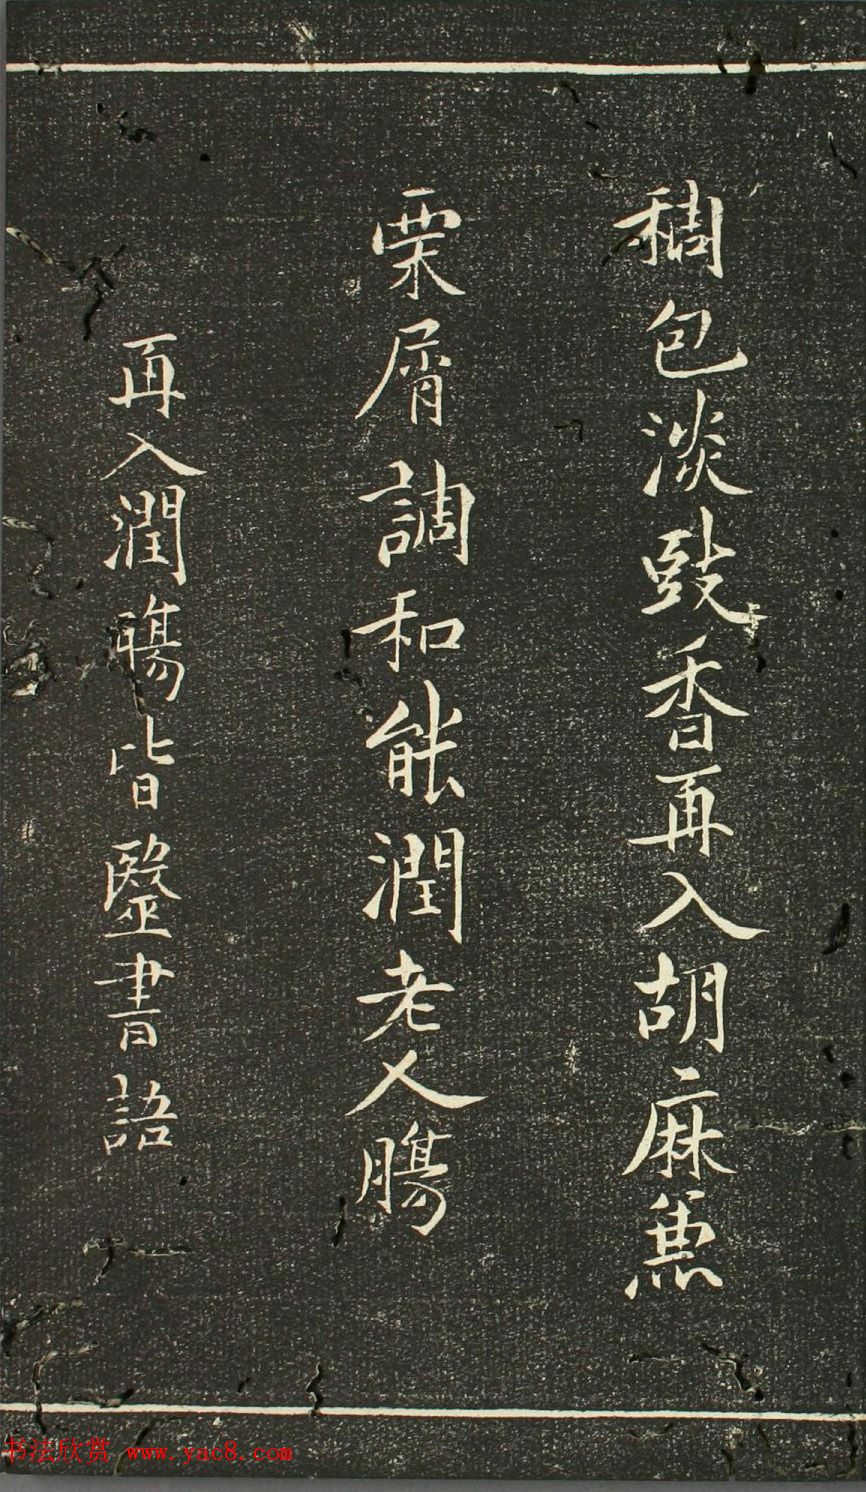 稠包淡豉香再入胡麻兼
栗屑調和能潤老人腸
再入潤腸皆毉書語
书法欣赏 www.yac8.com